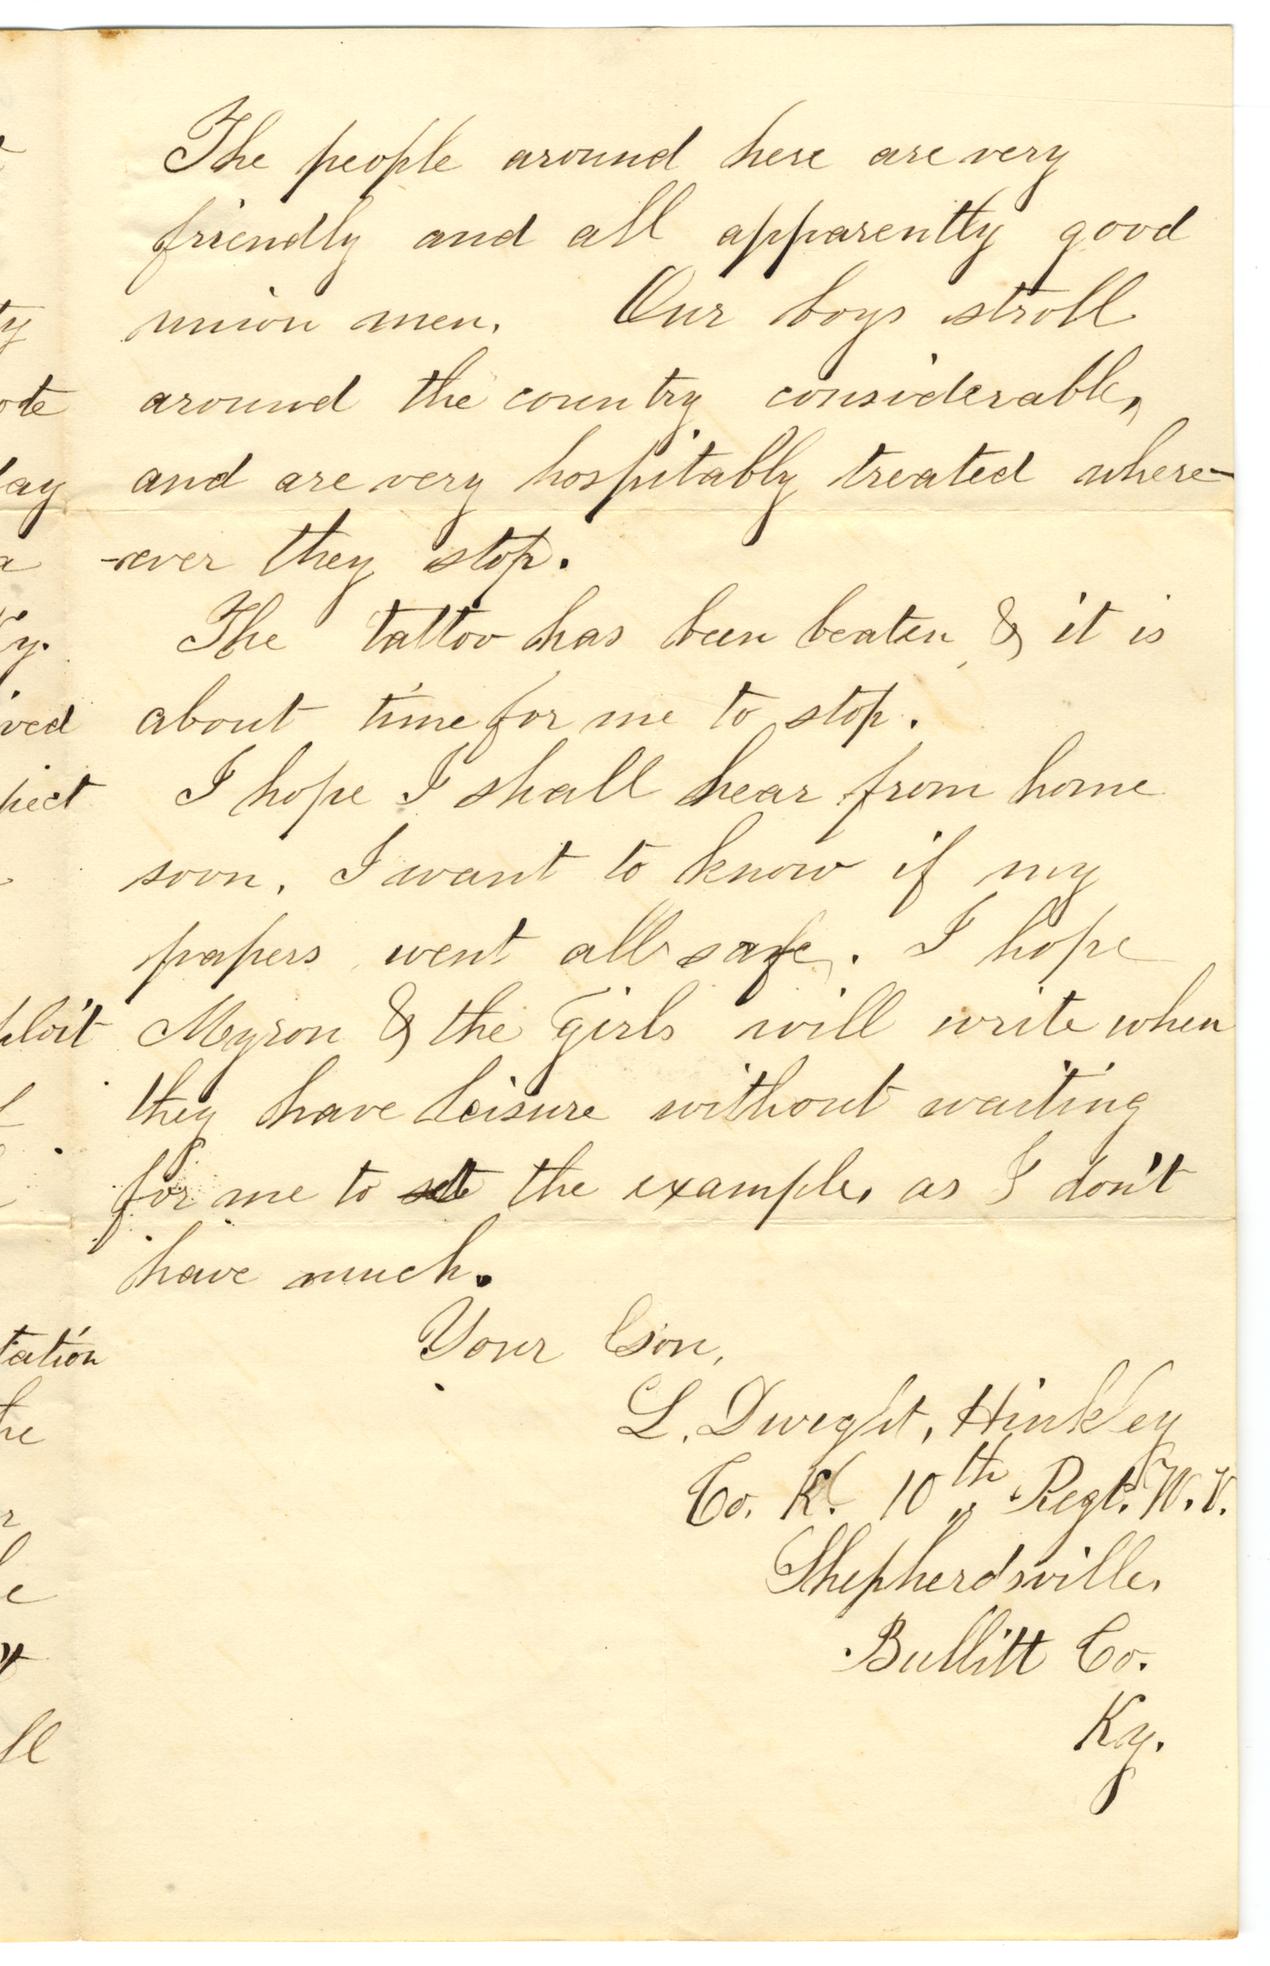 The people around here are very
friendly and all apparently good
union men. Our boys stroll
around the country considerable,
and are very hospitably treated where-
-ever they stop.
The tattoo has been beaten & it is
about time for me to stop.
I hope I shall hear from home
soon. I want to know if my
papers went all safe. I hope
Myron & the girls will write when
they have leisure without waiting
for me to set the example, as I don't
have much.
Your Son,
L. Dwight, Hinkley
Co. K. 10th Regt. W. V.
Shepherdsville,
Bullitt Co.
Ky.
ty
ote
day
a
Ky.
ved
pect
ploit
tation
he
r
le
't
ll